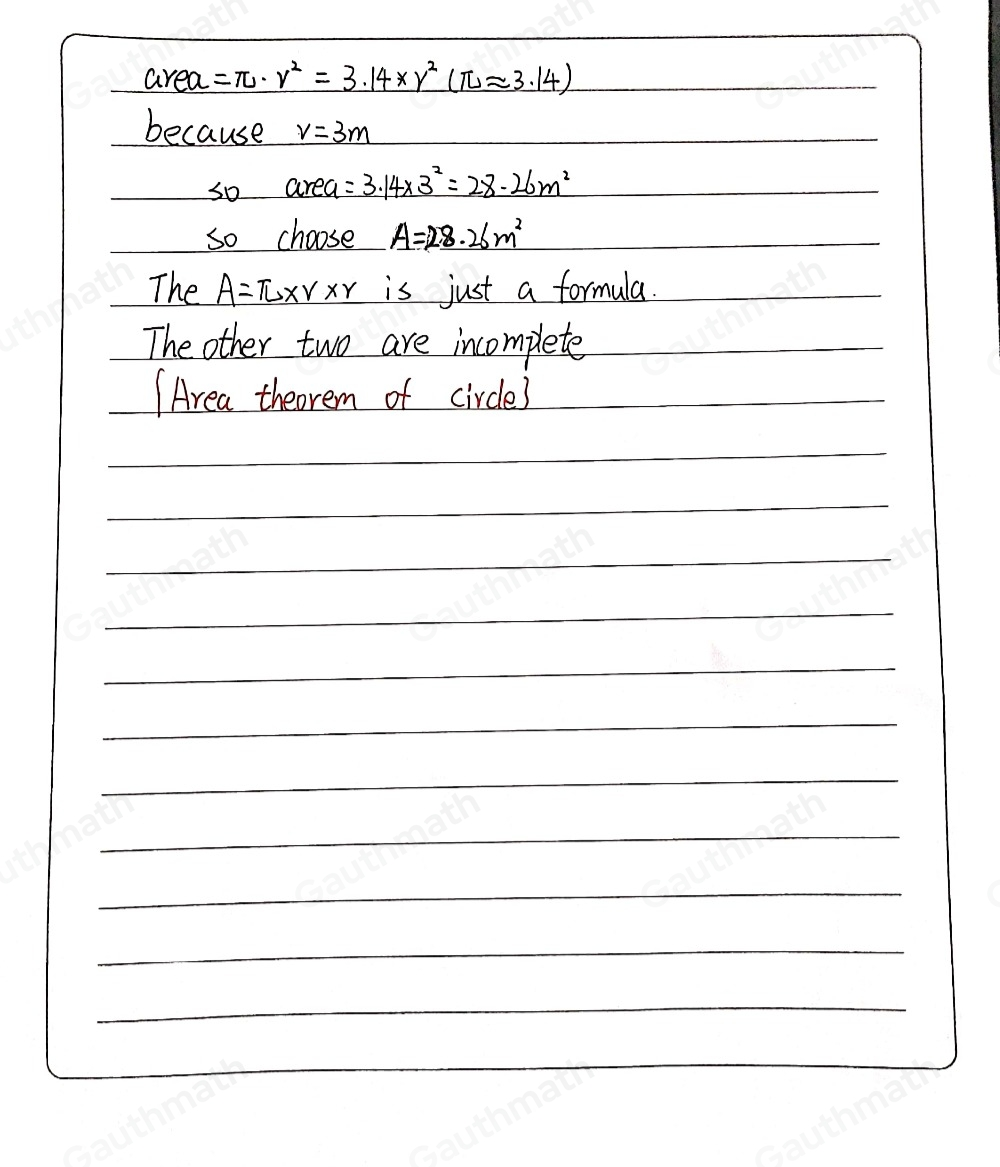 area = π · r² = 3.14 × r² (π ≈ 3.14)
because r = 3m
so area = 3.14 × 3² = 28.26m²
so choose A = 28.26m²
The A = π × r × r is just a formula.
The other two are incomplete
{Area theorem of circle}
Gauthmath